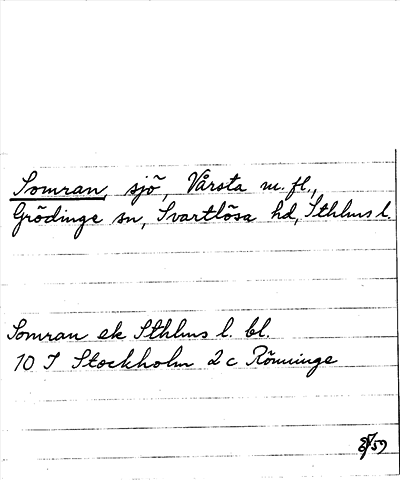 Somran, sjö, Vårsta m. fl.,
Grödinge sn, Svartlösa hd, Sthlms l.
Somran ek Sthlms l. bl.
10 I Stockholm 2c Rönninge
59